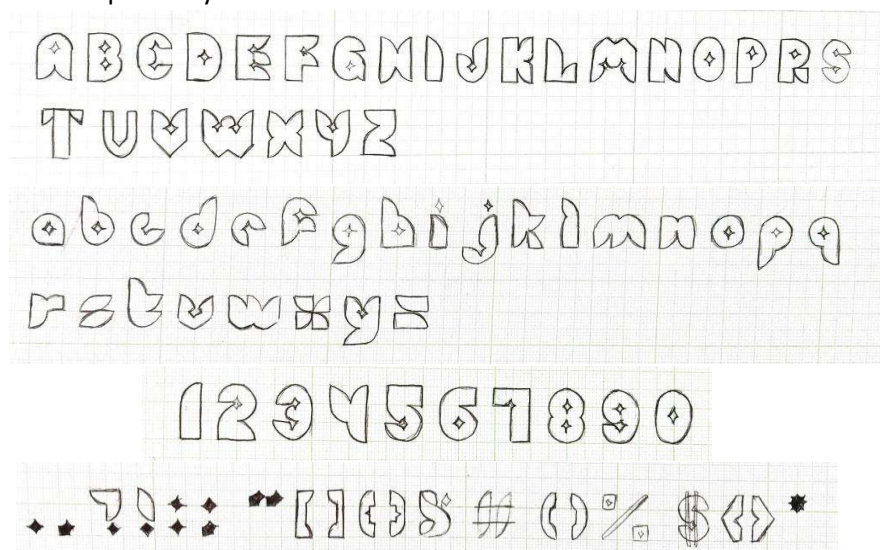 A B C D E F G H I J K L M N O P R S
T U V W X Y Z
a b c d e f g h i j k l m n o p q
r s t v w x y z
1 2 3 4 5 6 7 8 9 0
. , ? ! : ; " [ ] { } & # ( ) % $ < > *